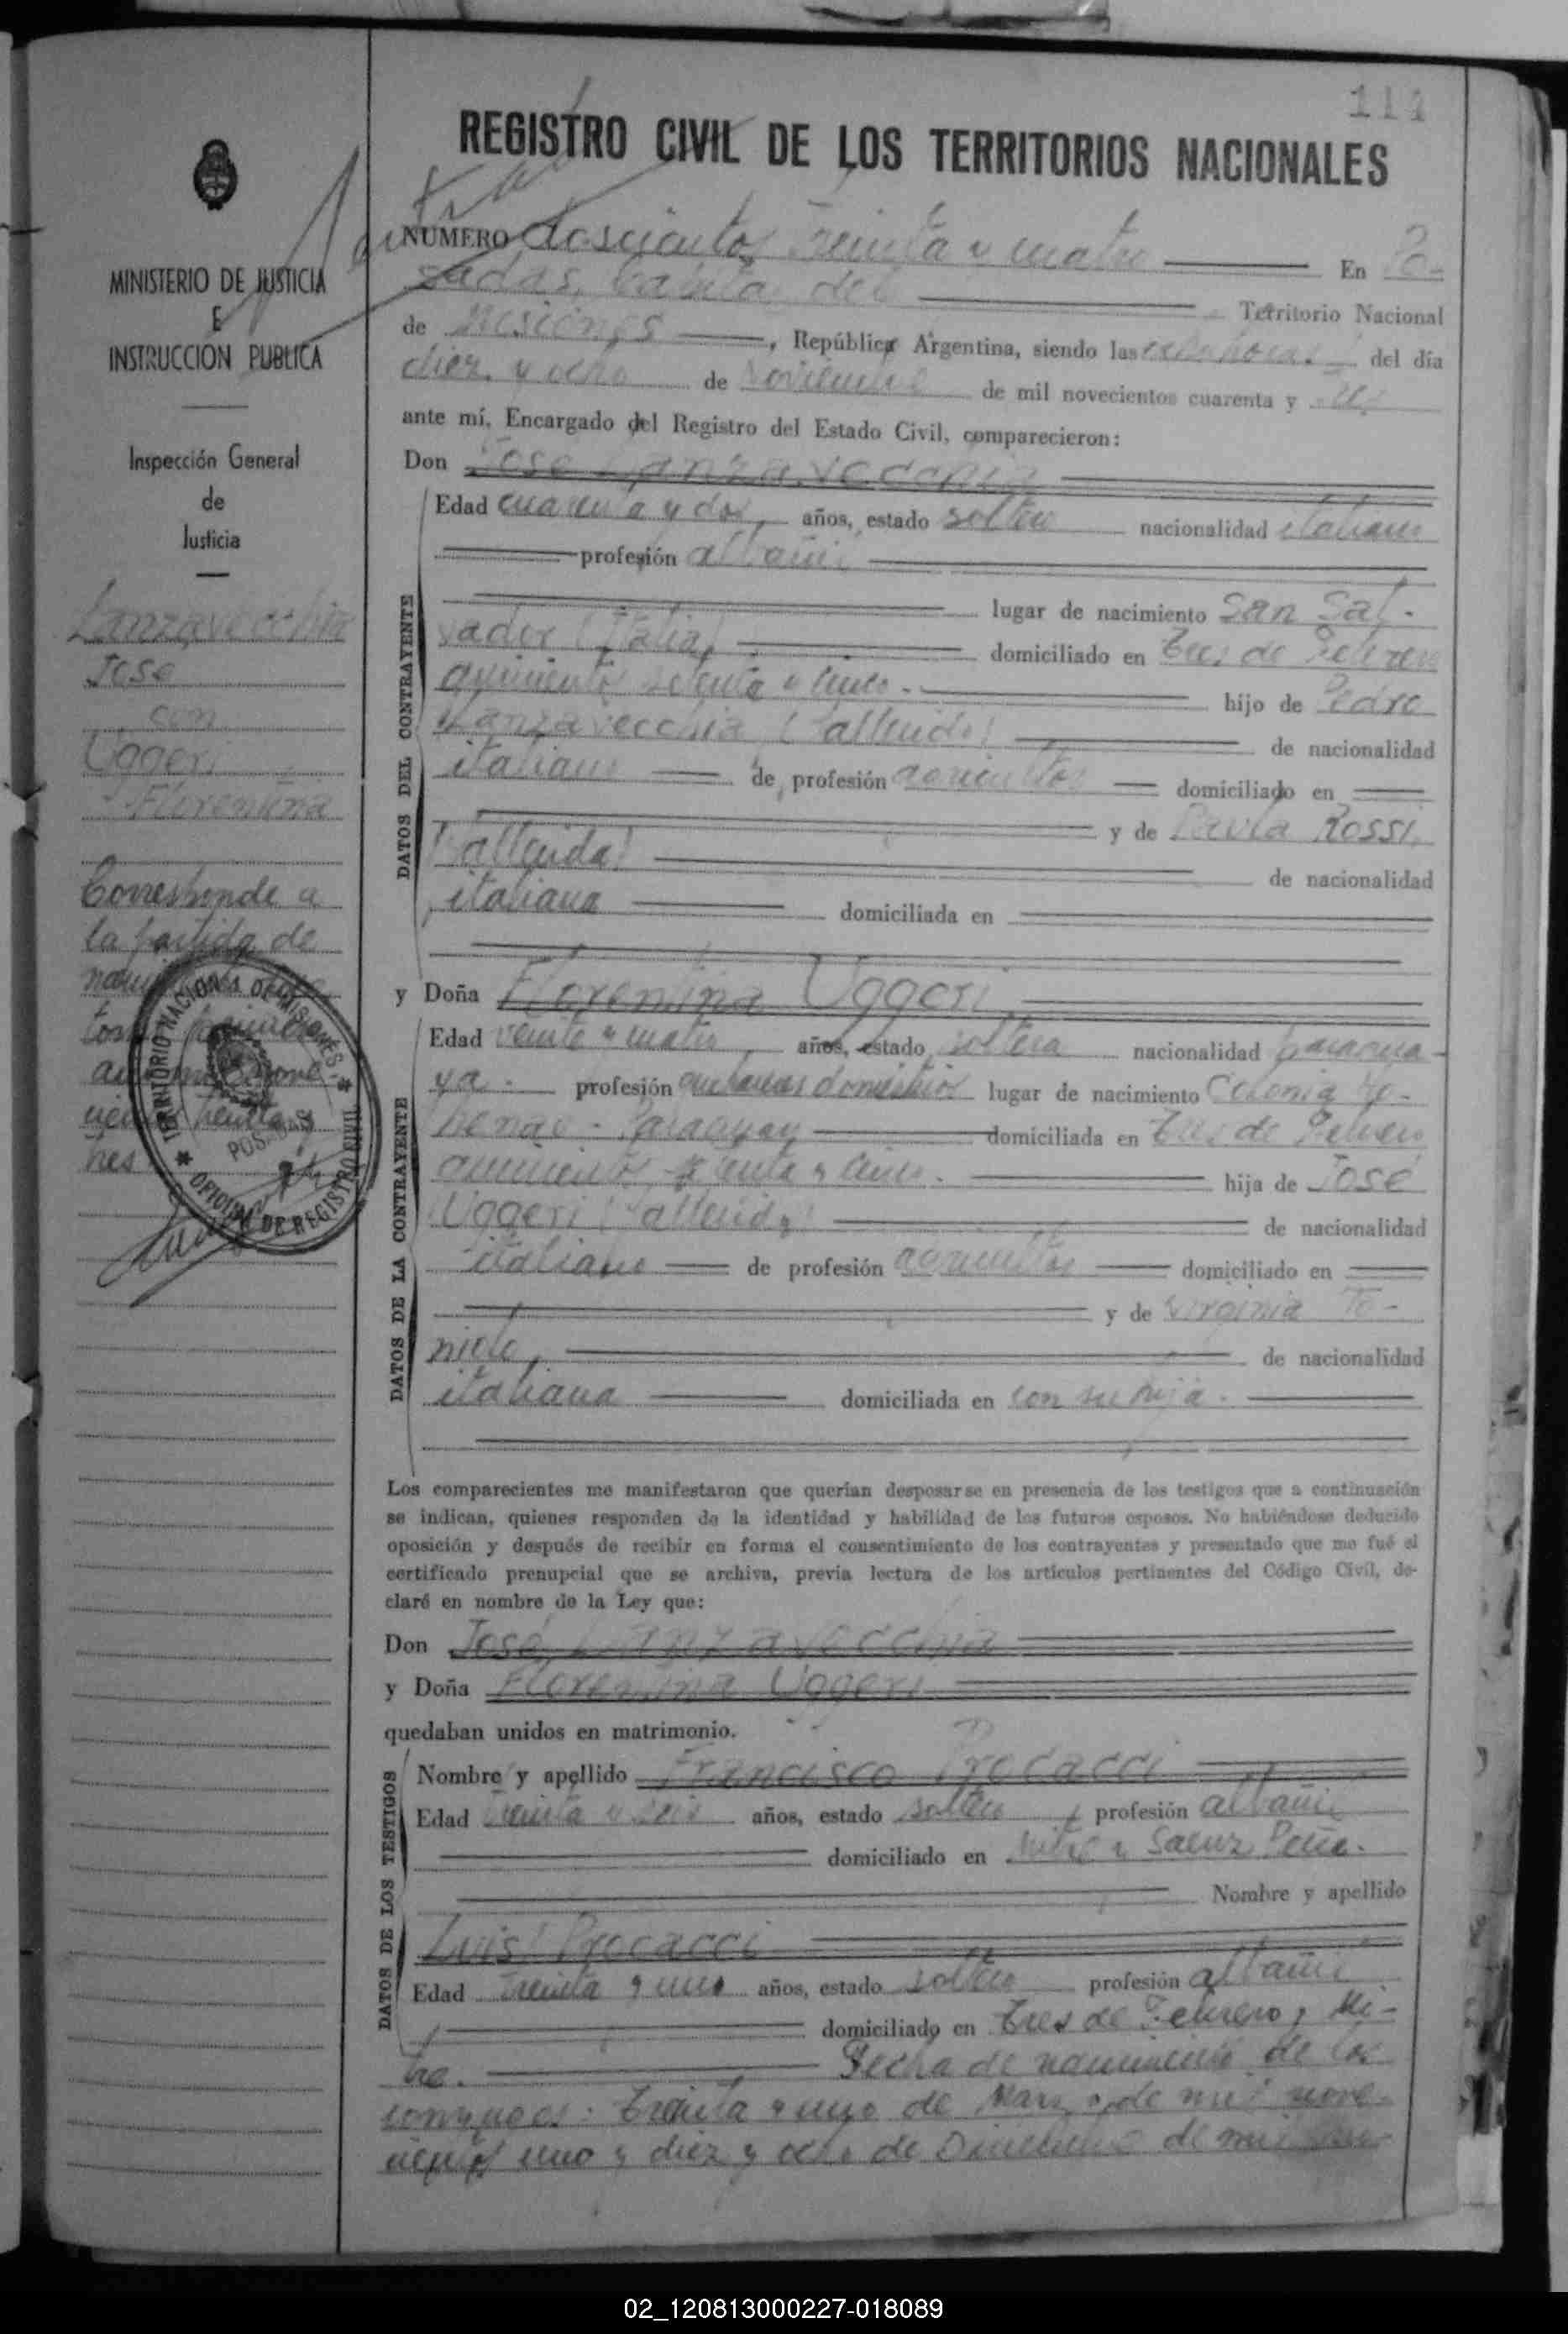 114
REGISTRO CIVIL DE LOS TERRITORIOS NACIONALES
MINISTERIO DE JUSTICIA
E
INSTRUCCION PUBLICA
Inspección General
de
Justicia
Lanzavecchia
José
con
Uggeri
Florentina
Corresponde a
la partida de
tres
TERRITORIO NACIONAL DE MISIONES
POSADAS
OFICINA DE REGISTRO CIVIL
NÚMERO doscientos treinta y cuatro En Po-
sadas, Capital del Territorio Nacional
de Misiones, República Argentina, siendo las horas del día
diez y ocho de noviembre de mil novecientos cuarenta y
ante mí, Encargado del Registro del Estado Civil, comparecieron:
Don José Lanzavecchia
DATOS DEL CONTRAYENTE
Edad cuarenta y dos, años, estado soltero nacionalidad italiano
profesión albañil
lugar de nacimiento San Sal-
vador (Italia) domiciliado en Tres de Febrero
quinientos setenta y cinco.- hijo de Pedro
Lanzavecchia (fallecido) de nacionalidad
italiano de profesión agricultor domiciliado en
y de Paula Rossi,
(fallecida) de nacionalidad
italiana domiciliada en
y Doña Florentina Uggeri
DATOS DE LA CONTRAYENTE
Edad veinte y cuatro, años, estado soltera nacionalidad paragua-
ya.- profesión quehaceres domésticos lugar de nacimiento Colonia Ho-
henau - Paraguay domiciliada en Tres de Febrero
quinientos setenta y cinco.- hija de José
Uggeri (fallecido) de nacionalidad
italiano de profesión agricultor domiciliado en
y de Virginia To-
niolo, de nacionalidad
italiana domiciliada en con su hija.
Los comparecientes me manifestaron que querían desposarse en presencia de los testigos que a continuación
se indican, quienes responden de la identidad y habilidad de los futuros esposos. No habiéndose deducido
oposición y después de recibir en forma el consentimiento de los contrayentes y presentado que me fué el
certificado prenupcial que se archiva, previa lectura de los artículos pertinentes del Código Civil, de-
claré en nombre de la Ley que:
Don José Lanzavecchia
y Doña Florentina Uggeri
quedaban unidos en matrimonio.
DATOS DE LOS TESTIGOS
Nombre y apellido Francisco Procacci
Edad treinta y seis años, estado soltero, profesión albañil
domiciliado en Mitre y Saenz Peña.
Nombre y apellido
Luis Procacci
Edad treinta y uno años, estado soltero profesión albañil
domiciliado en Tres de Febrero y Mi-
tre. Fecha de nacimiento de los
conyuges: treinta y uno de Marzo de mil nove-
cientos uno y diez y ocho de Diciembre de mil
02_120813000227-018089